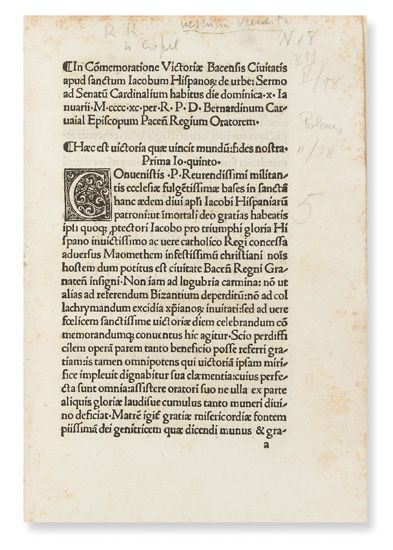 R. R.
N 18
⁋In Cōmemoratione Victoriæ Bacensis Ciuitatis
apud sanctum Iacobum Hispanoꝝ de urbe: Sermo
ad Senatū Cardinalium habitus die dominica · x · Ia
nuarii · M · cccc · xc · per · R · P · D · Bernardinum Car
uaial Episcopum Paceñ Regium Oratorem ·
⁋Hæc est victoria quæ uincit mundū: fides nostra ·
Prima Io · quinto ·
COnuenistis · P · Reuerdissimi militan
tis ecclesiæ fulgētissimæ bases in sanctā
hanc ædem diui apłi Iacobi Hispaniarū
patroni: ut imortali deo gratias habeatis
ipsi quoqꝫ ꝓtectori Iacobo pro triumphi gloria Hi
spano inuictissimo ac uere catholico Regi concessa
aduersus Maomethem infestissimū christiani nois
hostem dum potitus est ciuitate Baceñ Regni Gra
nateñ insigni · Non iam ad lugubria carmina: nō ut
alias ad referendum Bizantium deperditū: nō ad col
lachrymandum excidia xp̄ianoꝝ inuitati: sed ad uere
fœlicem sanctissime uictoriæ diem celebrandum cō
memorandumqꝫ conuentus hic agitur · Scio perdiffi
cilem opera parem tanto beneficio posse referri gra
tiam: is tamen omnipotens qui uictoriā ipsam mirifi
ce impleuit dignabitur sua clæmentia: cuius perfe
cta sunt omnia: assistere oratori suo ne ulla ex parte
aliquis gloriæ laudisue cumulus tanto muneri diui
no deficiat · Matrē igiť gratiæ misericordiæ fontem
piissimā dei genitricem quæ dicendi munus & gra/
a
5